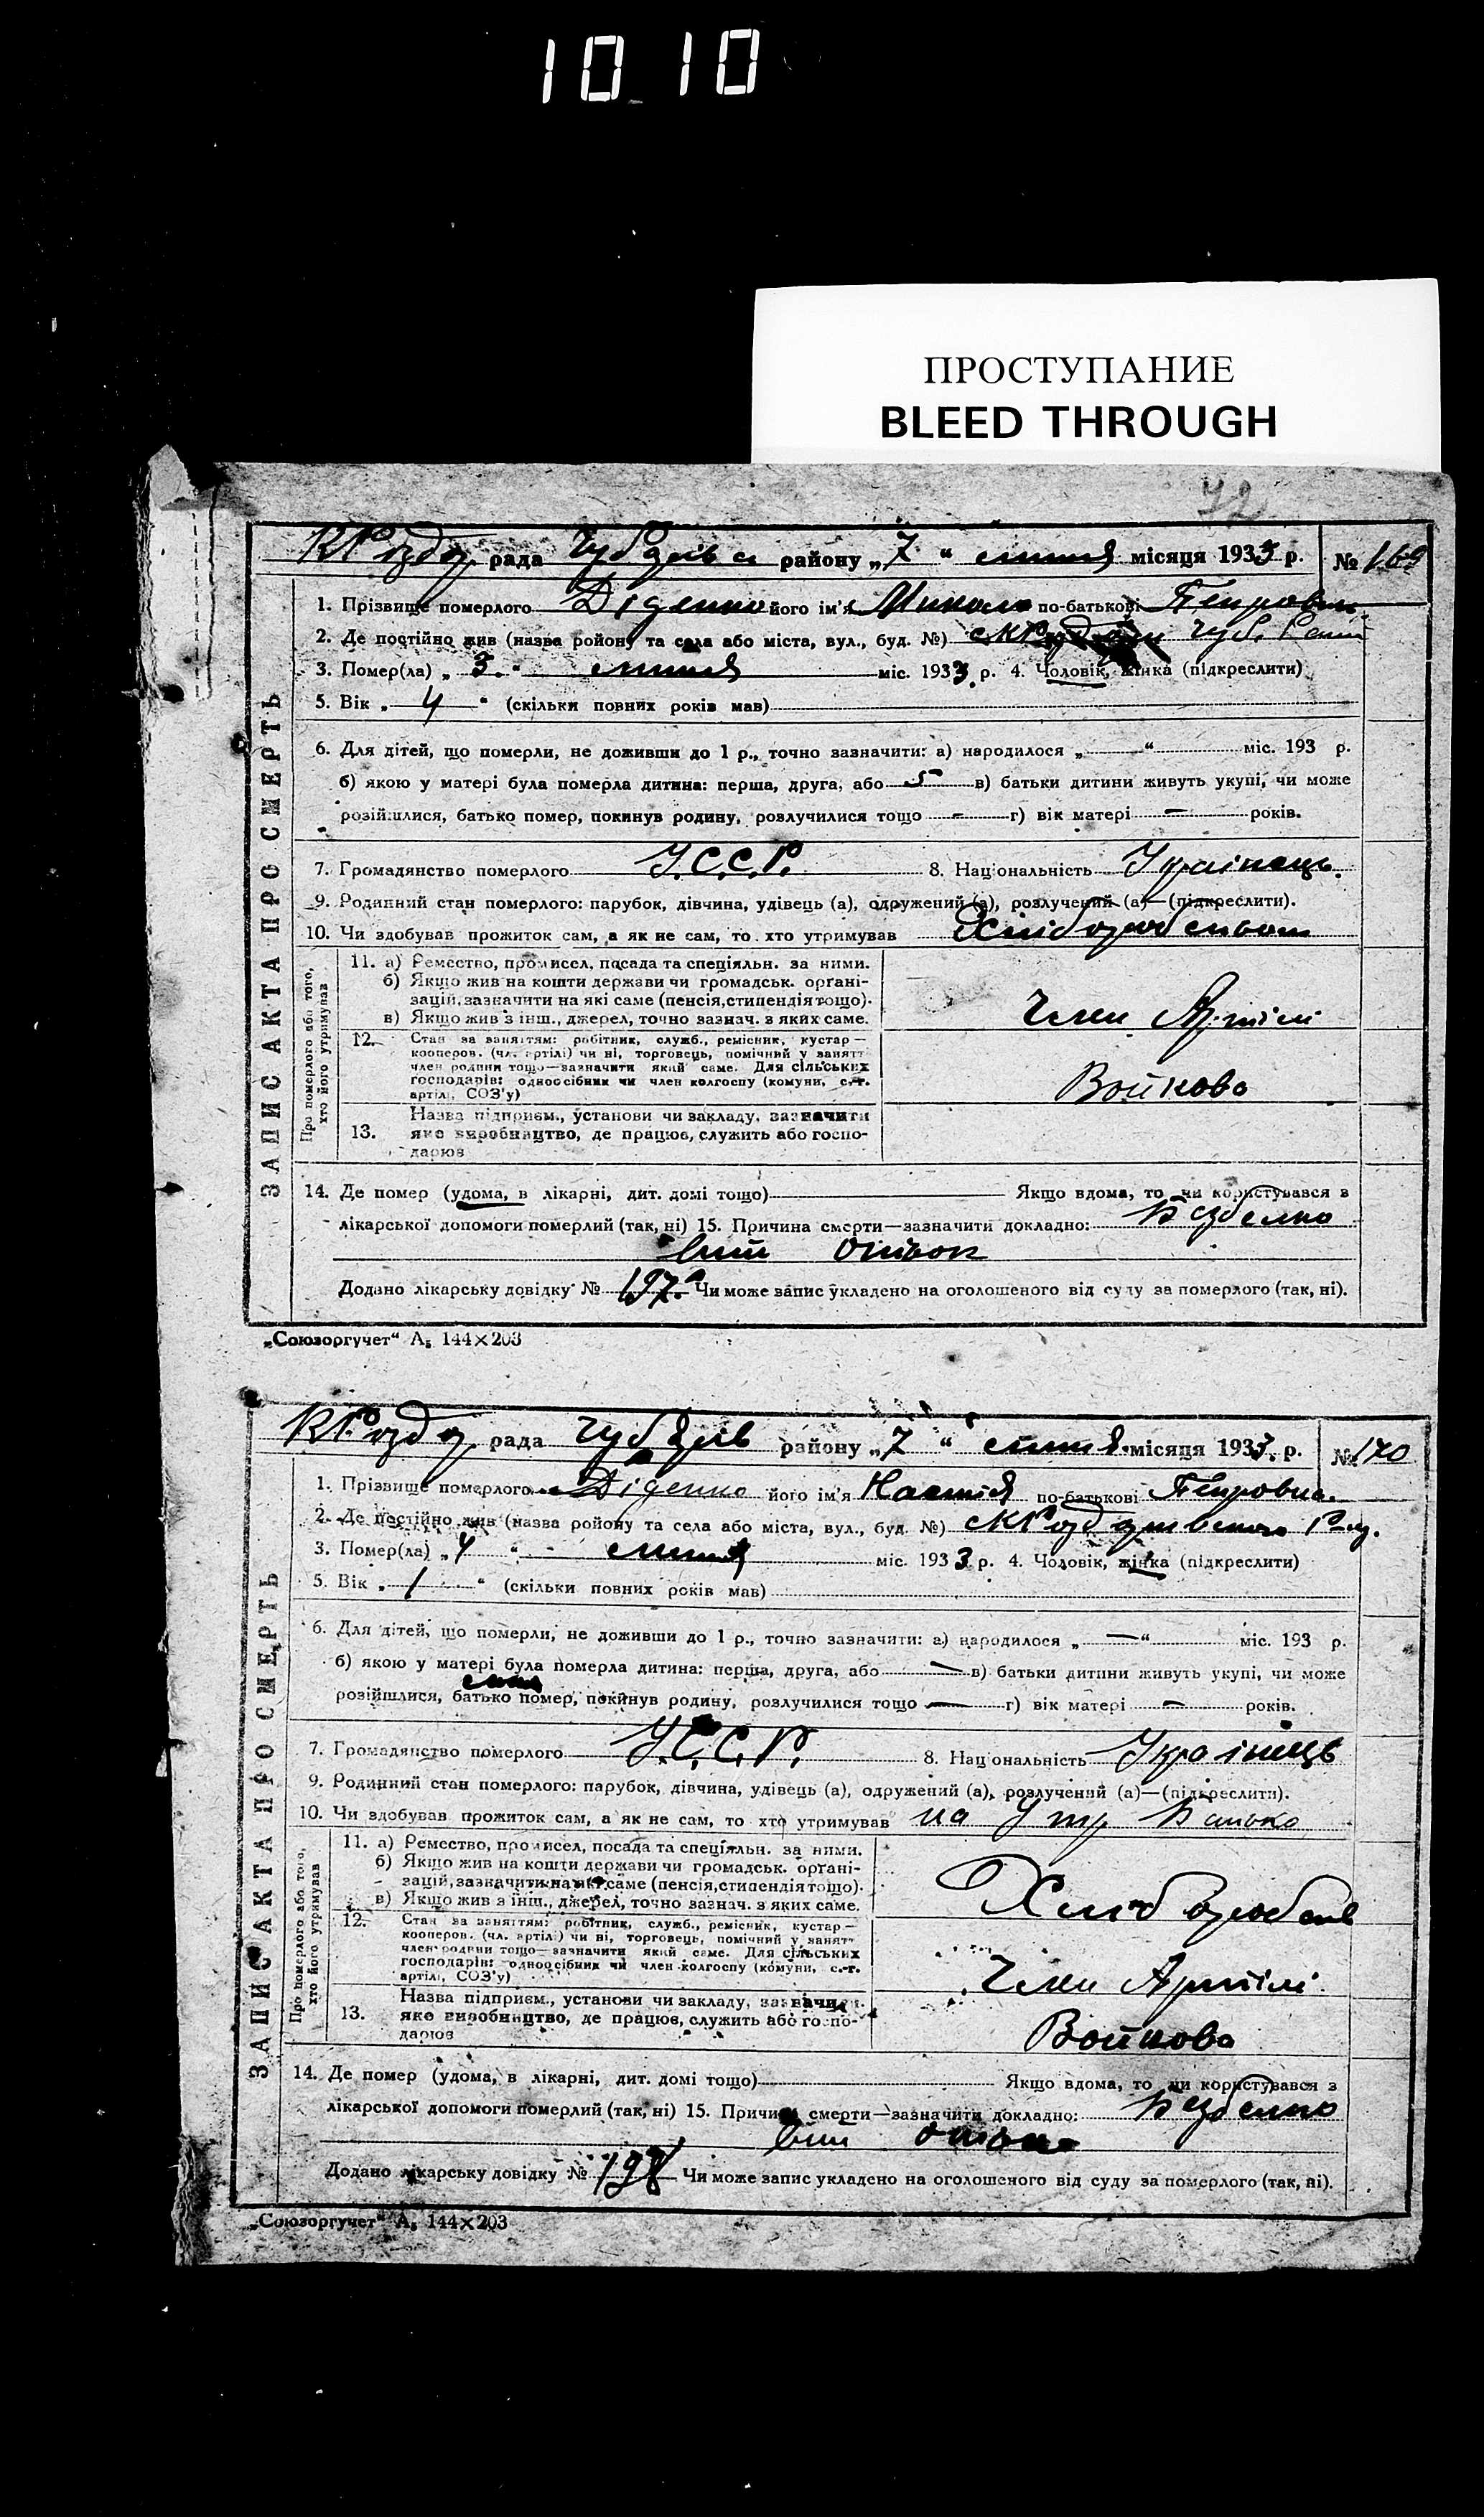 10 10
ПРОСТУПАНИЕ
BLEED THROUGH
72
рада Чуб району „7“ липня місяця 1933 р. № 169
1. Прізвище померлого Діденко його ім'я Микола по-батькові Петрович
2. Де постійно жив (назва району та села або міста, вул., буд. №)
3. Помер(ла) „3“ липня міс. 1933 р. 4. Чоловік, жінка (підкреслити)
5. Вік „4“ (скільки повних років мав)
6. Для дітей, що померли, не доживши до 1 р., точно зазначити: а) народилося „ “ міс. 193 р.
б) якою у матері була померла дитина: перша, друга, або в) батьки дитини живуть укупі, чи може
розійшлися, батько помер, покинув родину, розлучилися тощо — г) вік матері — років.
7. Громадянство померлого У.С.С.Р. 8. Національність Українець.
9. Родинний стан померлого: парубок, дівчина, удівець (а), одружений (а), розлучений (а)—(підкреслити).
10. Чи здобував прожиток сам, а як не сам, то хто утримував
ЗАПИС АКТА ПРО СМЕРТЬ
Про померлого або того, хто його утримував
11. а) Ремество, промисел, посада та спеціяльн. за ними.
б) Якщо жив на кошти держави чи громадськ. органі-
зацій, зазначити на які саме (пенсія, стипендія тощо).
в) Якщо жив з інш., джерел, точно зазнач. з яких саме.
Член Артілі
12. Стан за заняттям: робітник, служб., ремісник, кустар—
кооперов. (чл. артілі) чи ні, торговець, помічний у занятт
член родини тощо—зазначити який саме. Для сільських
господарів: одноосібник чи член колгоспу (комуни, с.-г.
артілі, СОЗ'у)
Войкова
Назва підприєм., установи чи закладу, зазначити
13. яке виробництво, де працює, служить або госпо-
дарює
14. Де помер (удома, в лікарні, дит. домі тощо) Якщо вдома, то чи користувався з
лікарської допомоги померлий (так, ні) 15. Причина смерти—зазначити докладно: Безбелко
вий
Додано лікарську довідку № 197. Чи може запис укладено на оголошеного від суду за померлого (так, ні).
„Союзоргучет“ А5 144×203
рада Чуб району „7“ липня місяця 1933 р. № 170
1. Прізвище померлого Діденко його ім'я Настія по-батькові Петровна
2. Де постійно жив (назва району та села або міста, вул., буд. №)
3. Помер(ла) „4“ липня міс. 1933 р. 4. Чоловік, жінка (підкреслити)
5. Вік „1“ (скільки повних років мав)
6. Для дітей, що померли, не доживши до 1 р., точно зазначити: а) народилося „—“ міс. 193 р.
б) якою у матері була померла дитина: перша, друга, або — в) батьки дитини живуть укупі, чи може
розійшлися, батько помер, покинув родину, розлучилися тощо — г) вік матері — років.
7. Громадянство померлого У.С.С.Р. 8. Національність Українець
9. Родинний стан померлого: парубок, дівчина, удівець (а), одружений (а), розлучений (а)—(підкреслити).
10. Чи здобував прожиток сам, а як не сам, то хто утримував на утр Батько
ЗАПИС АКТА ПРО СМЕРТЬ
Про померлого або того, хто його утримував
11. а) Ремество, промисел, посада та спеціяльн. за ними.
б) Якщо жив на кошти держави чи громадськ. органі-
зацій, зазначити на які саме (пенсія, стипендія тощо).
в) Якщо жив з інш., джерел, точно зазнач. з яких саме.
12. Стан за заняттям: робітник, служб., ремісник, кустар—
кооперов. (чл. артілі) чи ні, торговець, помічний у занятт
член родини тощо—зазначити який саме. Для сільських
господарів: одноосібник чи член колгоспу (комуни, с.-г.
артілі, СОЗ'у)
Член Артілі
Назва підприєм., установи чи закладу, зазначити
13. яке виробництво, де працює, служить або госпо-
дарює
Войкова
14. Де помер (удома, в лікарні, дит. домі тощо) Якщо вдома, то чи користувався з
лікарської допомоги померлий (так, ні) 15. Причина смерти—зазначити докладно: Безбелко
вий
Додано лікарську довідку № 198 Чи може запис укладено на оголошеного від суду за померлого (так, ні).
„Союзоргучет“ А5 144×203